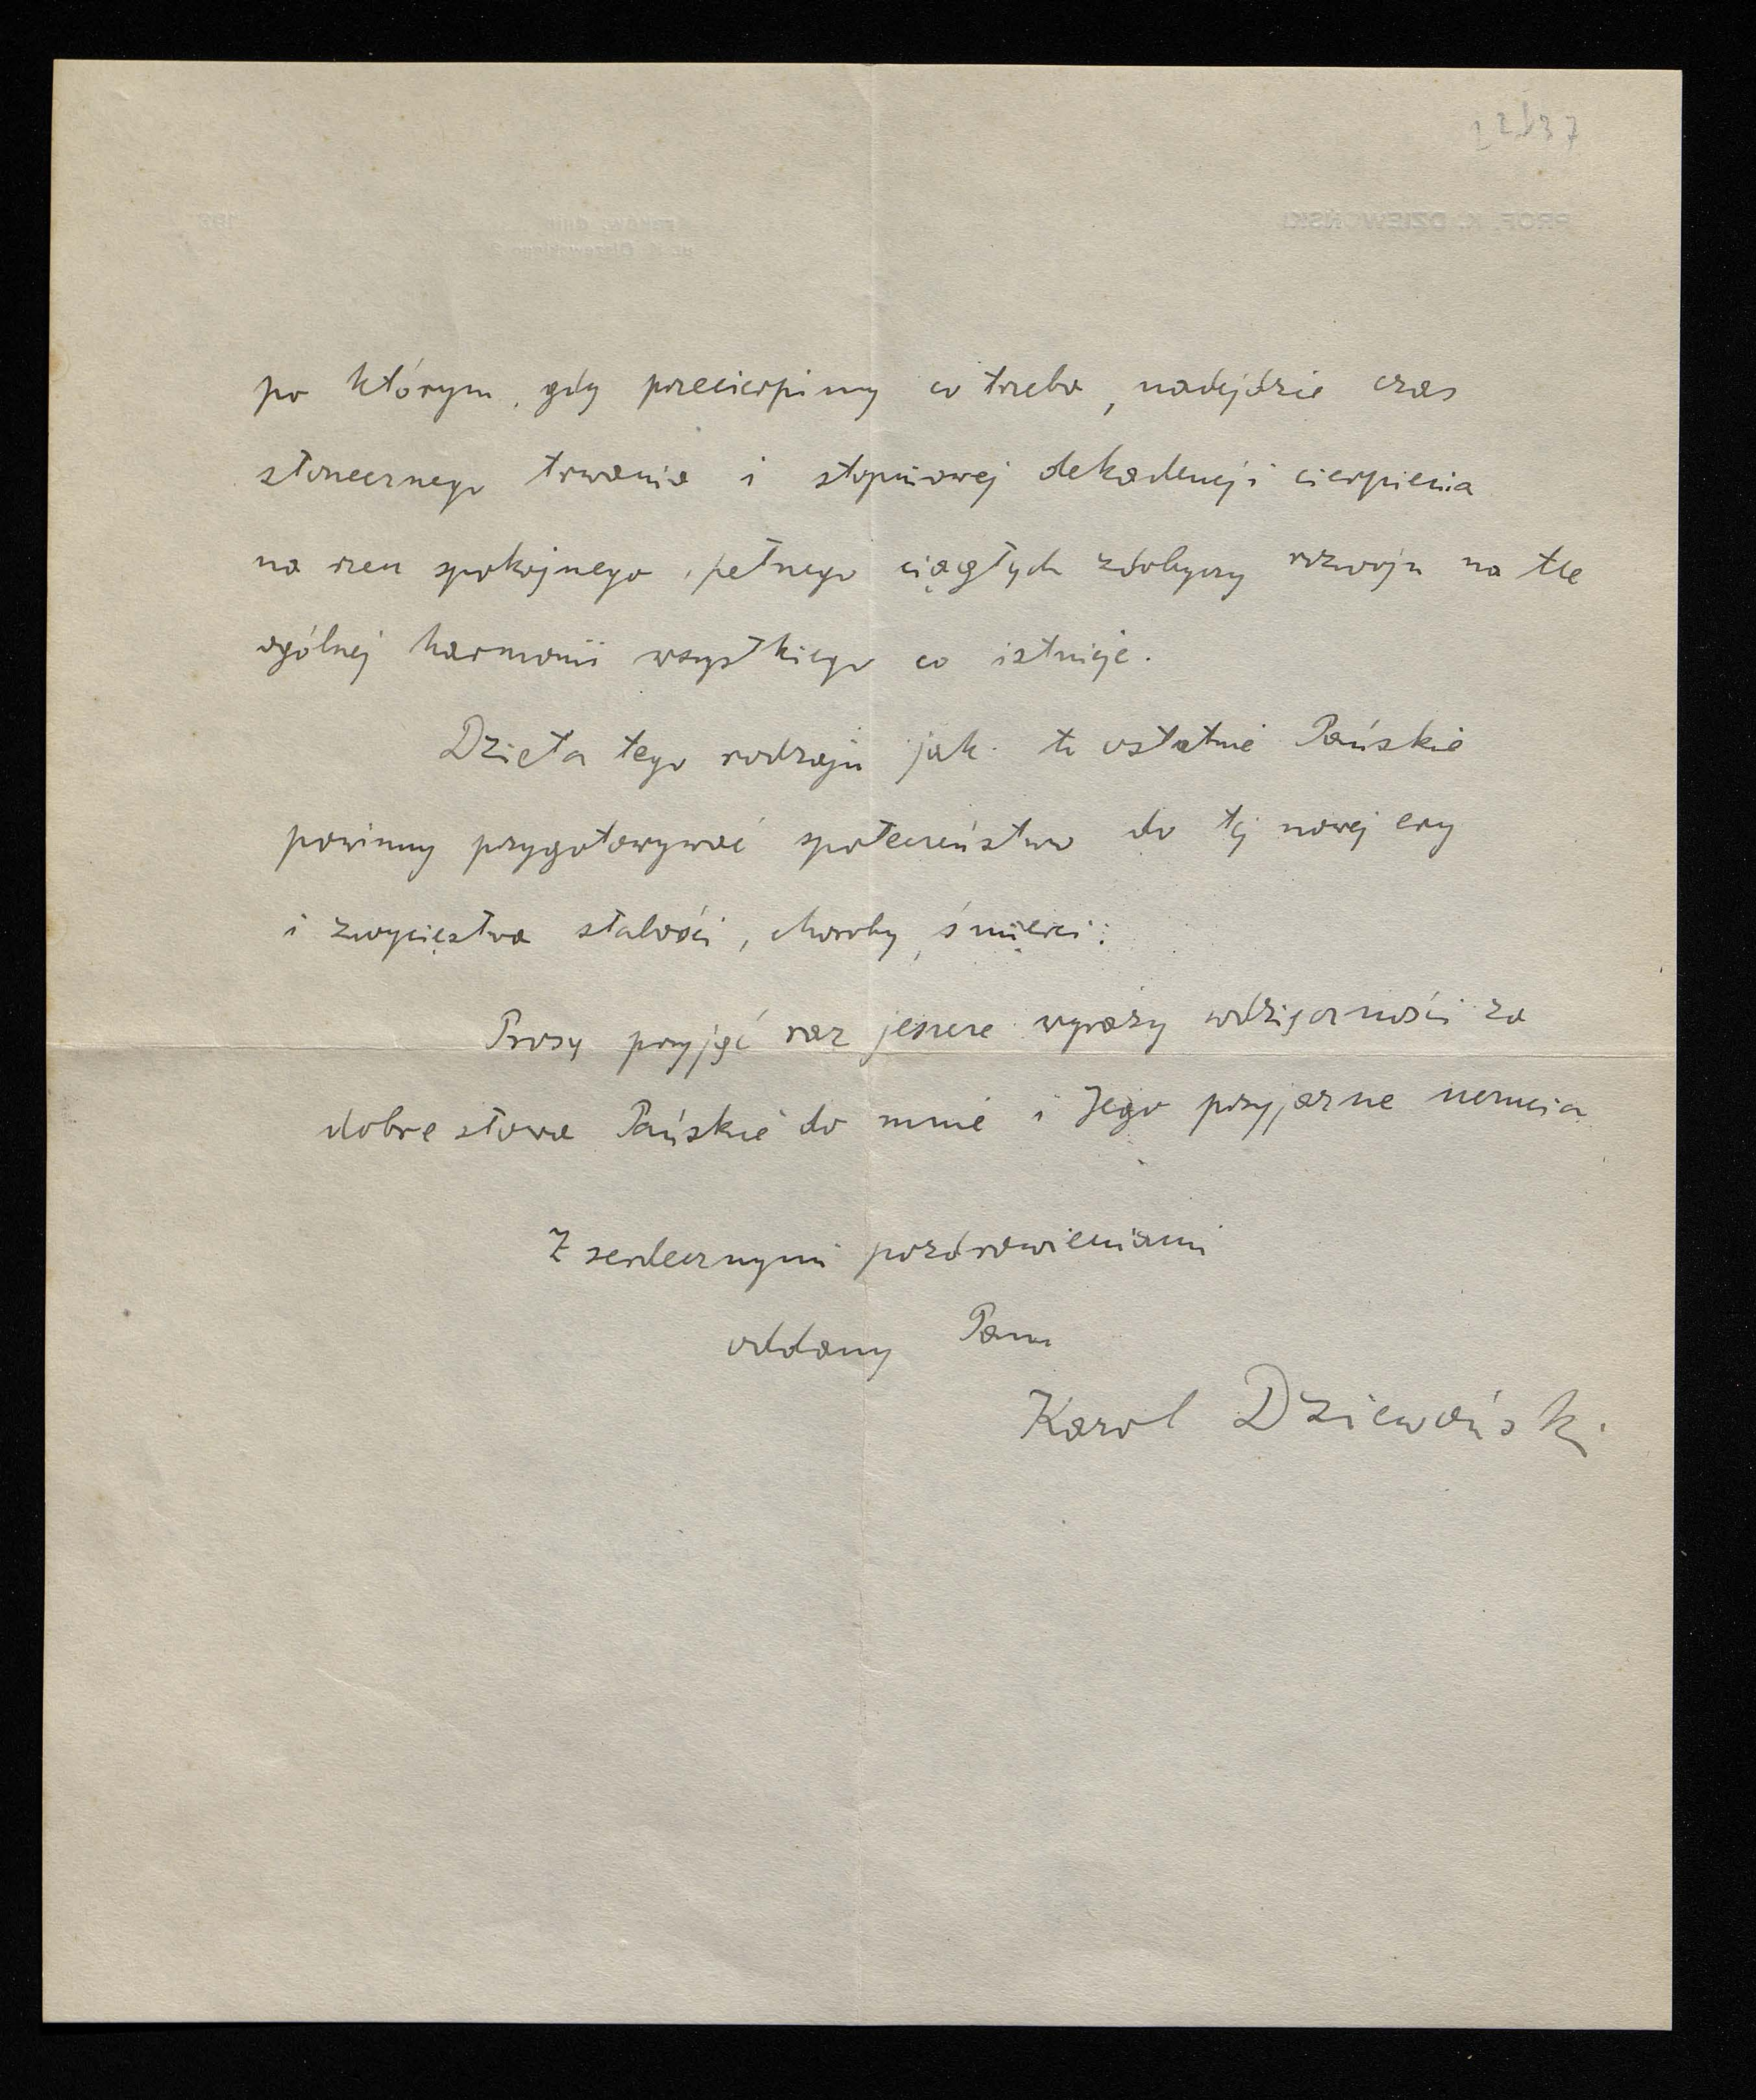 po którym, gdy przecierpimy co trzeba, nadejdzie czas
słonecznego trwania i stopniowej dekadencji cierpienia
na rzecz spokojnego, pełnego ciągłych zdobyczy rozwoju na tle
ogólnej harmonii wszystkiego co istnieje.
Dzieła tego rodzaju jak to ostatnie Pańskie
powinny przygotowywać społeczeństwo do tej nowej ery
i zwycięstwa słabości, choroby, śmierci.
Proszę przyjąć raz jeszcze wyrazy wdzięczności za
dobre słowa Pańskie do mnie i Jego przyjazne uczucia
Z serdecznymi pozdrowieniami
oddany Panu
Karol Dziewoński